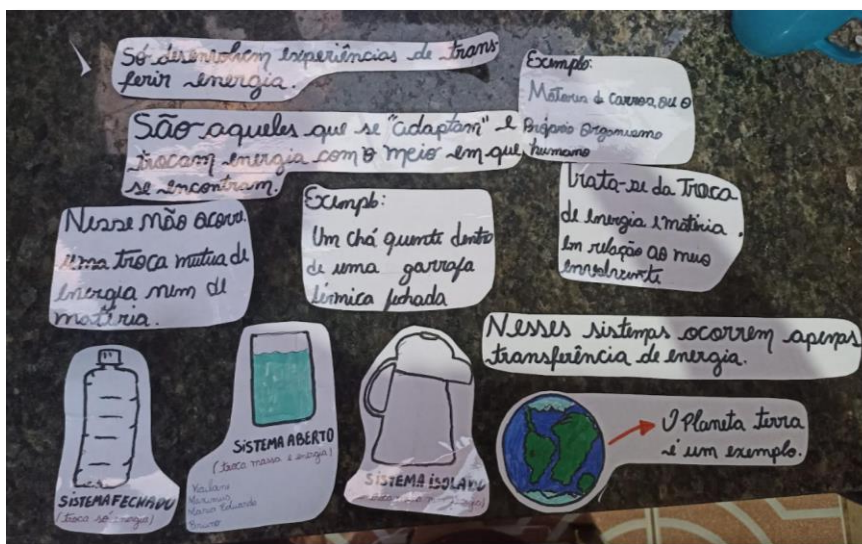 Só desenvolvem experiências de trans-
ferir energia.
Exemplo:
Motores de Carros, ou o
Próprio Organismo
humano
São aqueles que se "adaptam" e
trocam energia com o meio em que
se encontram.
Nesse não ocorre
uma troca mutua de
energia nem de
matéria.
Exemplo:
Um chá quente dentro
de uma garrafa
térmica fechada
Trata-se da Troca
de energia e matéria
em relação ao meio
envolvente
Nesses sistemas ocorrem apenas
transferência de energia.
SISTEMA FECHADO
(troca só energia)
SISTEMA ABERTO
(troca massa e energia)
Maria Eduarda
Bruno
SISTEMA ISOLADO
O Planeta terra
é um exemplo.